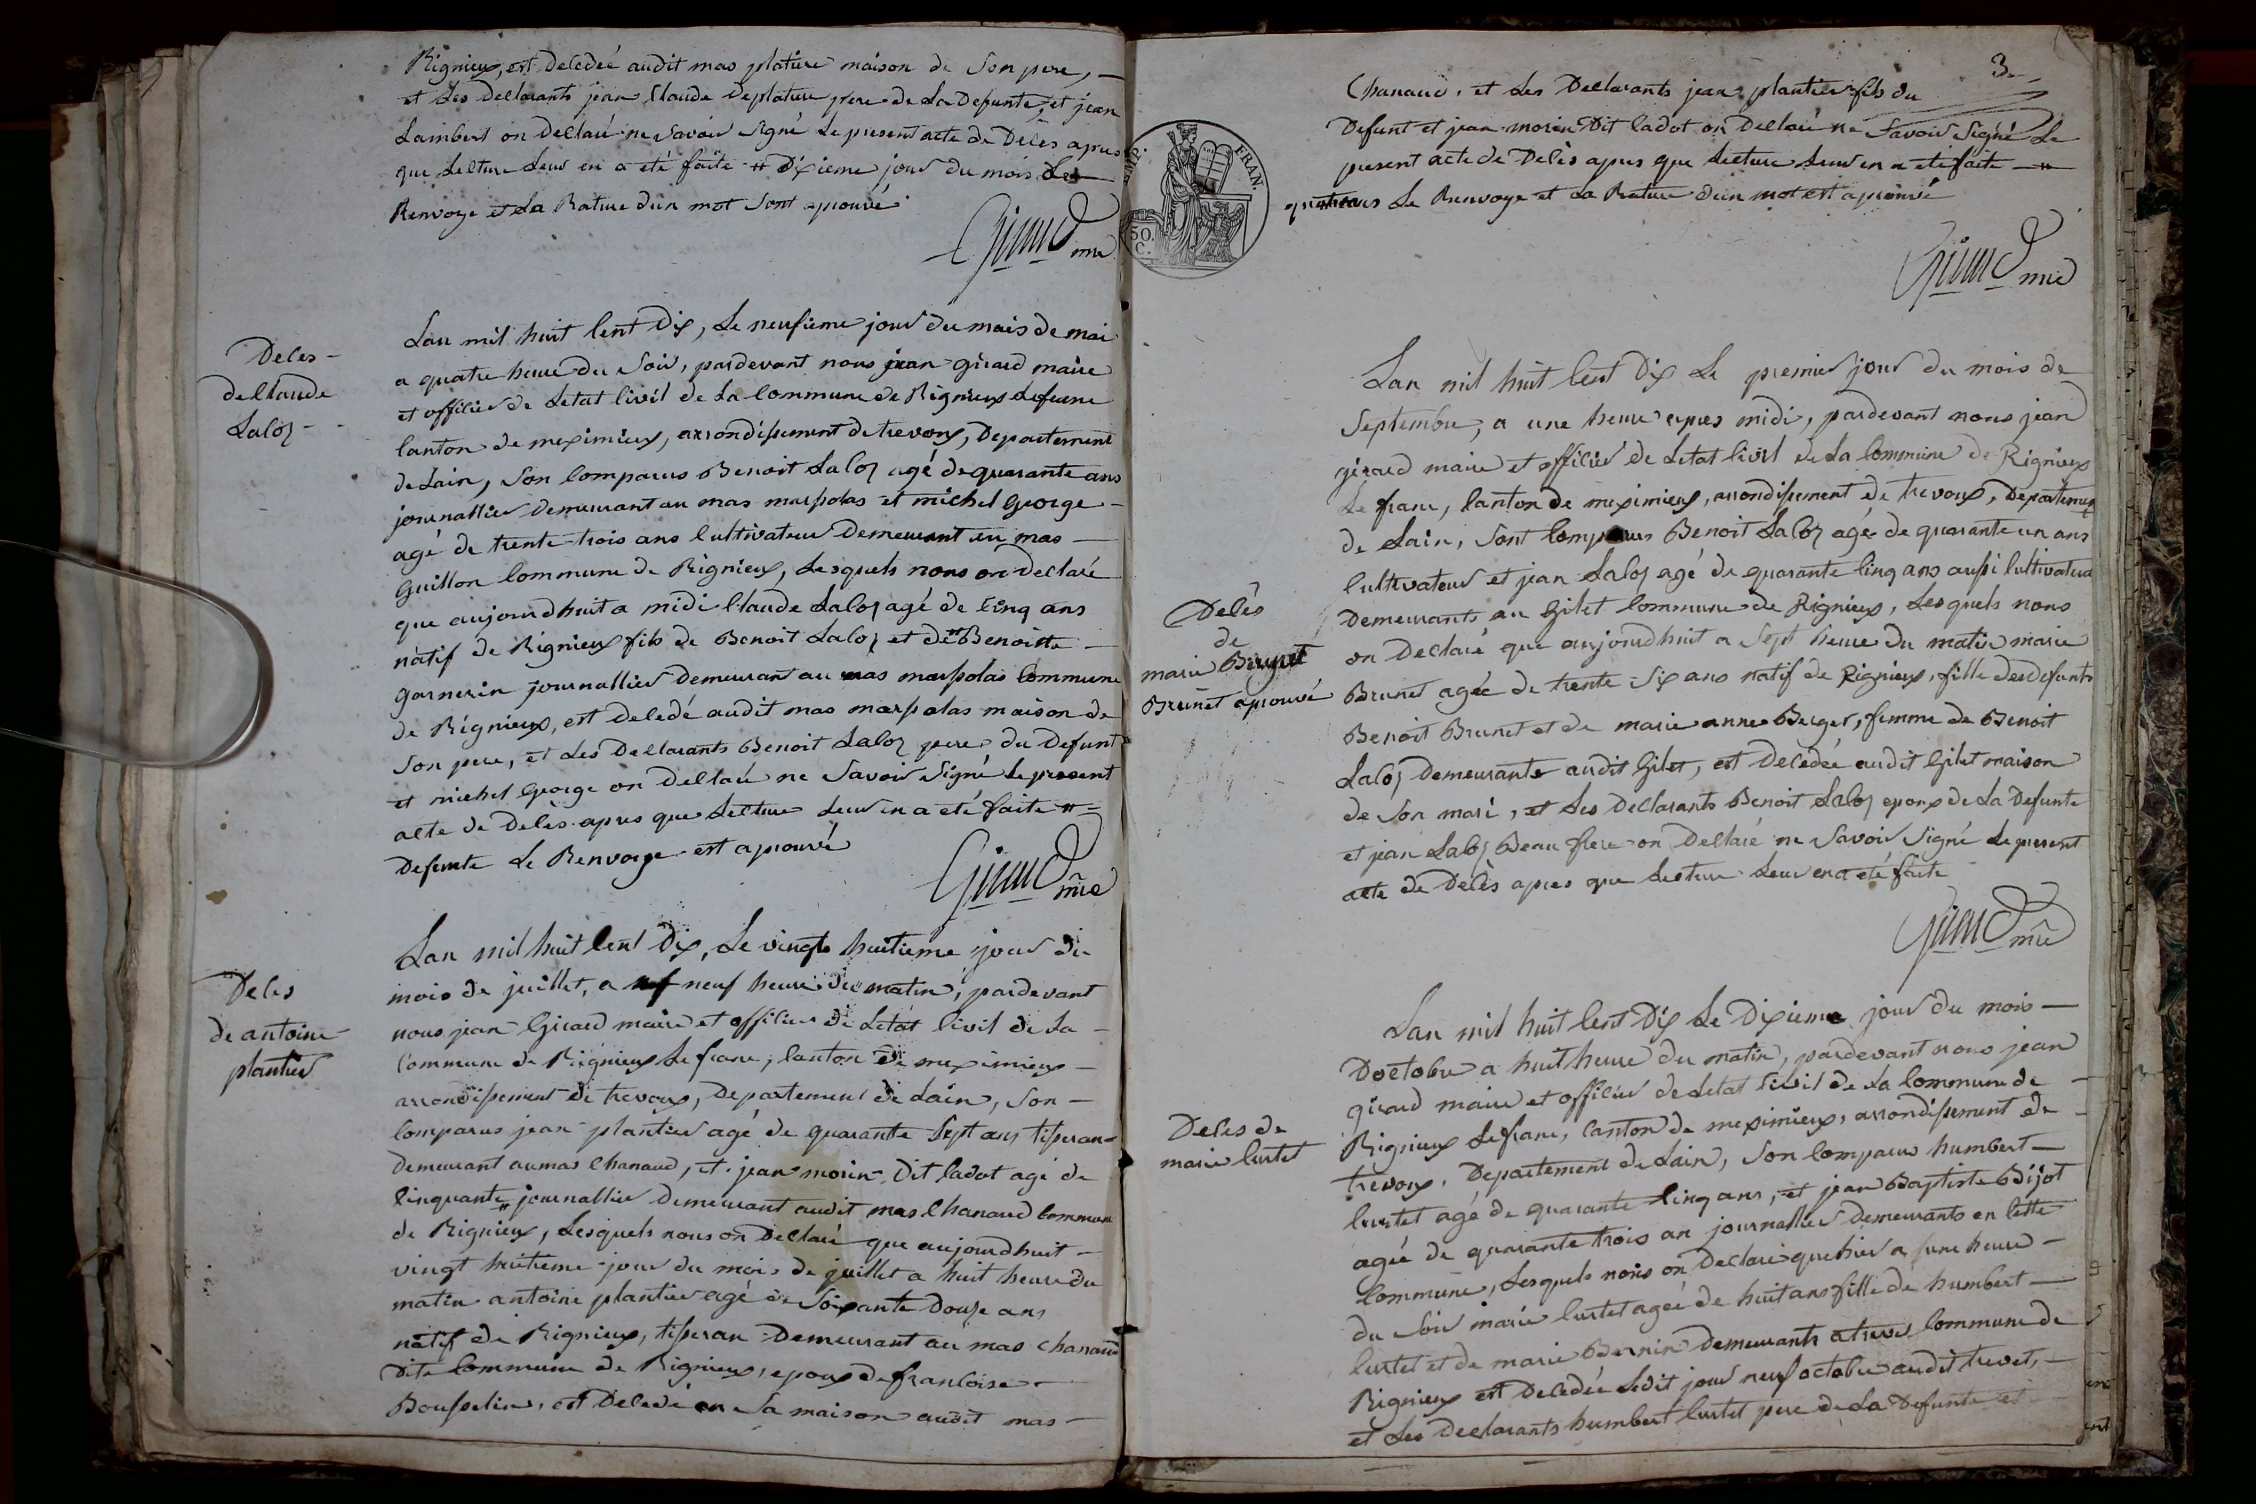 Rignieux, est decedeé audit mas plature maison de Son pere, —
et Les declarants jean Claude Deplature pere de La Defunte, et jean
Lambert on declaré ne savoir signé Le present acte de Déces apres
que Lecture Leur en a eté faite # Dixieme jour du mois Les
Renvoye et La Rature d'un mot Sont aprouvé
Girard mre
Deces
de Claude
Laloz
Lan mil huit Cent Dix, Le neufieme jour du mois de mai
a quatre heure du Soir, pardevant nous jean girard maire
et officier de Letat Civil de La Commune de Rignieux Lefranc
Canton de meximieux, arrondissement de trevoux, Departement
de Lain, Son Comparus Benoit Laloz agé de quarante ans
journallier demeurant au mas marsolas et michel george
agé de trente trois ans Cultivateur Demeurant au mas —
Guillon Commune de Rignieux, Lesquels nous on declaré
que aujourdhuit a midi Claude Laloz agé de Cinq ans
natif de Rignieux fils de Benoit Laloz et de # Benoitte —
garnerin journallier demeurant au mas marsolas Commune
de Rignieux, est decedé audit mas marsolas maison de
Son pere, et Les Declarants Benoit Laloz pere du Defunt
et michel george on declaré ne Savoir Signé Le present
acte de Déces apres que Lecture Leur en a eté faite #
Defunte Le Renvoye est aprouvé
Girard mre
Deces
de antoine
plantier
Lan mil huit Cent Dix, Le vingt huitieme jour du
mois de juillet, a neuf heure du matin, pardevant
nous jean Girard maire et officier de Letat Civil de La
Commune de Rignieux Le franc, Canton de meximieux —
arrondissement de trevoux, Departement de Lain, Son —
Comparus jean plantier agé de quarante Sept ans tisseran
demeurant au mas Chanaud, et jean morin Dit ladot agé de
Cinquante # journallier demeurant audit mas Chanaud Commune
de Rignieux, Lesquels nous on Declaré que aujourdhuit —
vingt huitieme jour du mois de juillet a huit heure du
matin antoine plantier agé de Soixante Douze ans
natif de Rignieux, tisseran Demeurant au mas Chanaud
Dite Commune de Rignieux, epoux de francoise
Bousselin, est Decedé en Sa maison audit mas —
3
Chanaud, et Les Declarants jean plantier fils du
Defunt et jean morin Dit ladot on Declaré ne Savoir Signé Le
present acte de Decès apres que Lecture Leur en a eté faite — #
ans Le Renvoye et La Rature d'un mot est aprouvé
FRAN.
50.
C.
Girard mre
Decès
de
marie
Brunet aprouvé
Lan mil huit Cent Dix Le premier jour du mois de
Septembre, a une heure apres midi, pardevant nous jean
girard maire et officier de Letat Civil de La Commune de Rignieux
Le franc, Canton de meximieux, arrondissement de trevoux, Departement
de Lain, Sont Comparus Benoit Laloz agé de quarante un ans
Cultivateur et jean Laloz agé de quarante Cinq ans aussi Cultivateur
Demeurants au Gilet Commune de Rignieux, Lesquels nous
on Declaré que aujourdhuit a Sept heure du matin marie
Brunet agée de trente Six ans natif de Rignieux, fille des defunts
Benoit Brunet et de marie anne Berger, femme de Benoit
Laloz Demeurante audit Gilet, est Decedée audit Gilet maison
de Son mari, et Les Declarants Benoit Laloz epoux de La Defunte
et jean Laloz Beau frere on Declaré ne Savoir Signé Le present
acte de Decès apres que Lecture Leur en a eté faite
Girard mre
Deces de
marie Curtet
Lan mil huit Cent Dix Le Dixieme jour du mois —
Doctobre a huit heure du matin, pardevant nous jean
girard maire et officier de Letat Civil de La Commune de
Rignieux Lefranc, Canton de meximieux, arrondissement de
trevoux, Departement de Lain, Son Comparu humbert —
Curtet agé de quarante Cinq ans, et jean Baptiste Bijot
agée de quarante trois an journallier Demeurants en Cette
Commune, Lesquels nous on Declaré que hier a une heure —
du Soir marie Curtet agée de huit ans fille de humbert —
Curtet et de marie Bernin Demeurants a trevet Commune de
Rignieux est Decedée Ledit jour neuf octobre audit trevet, —
et Les Declarants humbert Curtet pere de La Defunte et